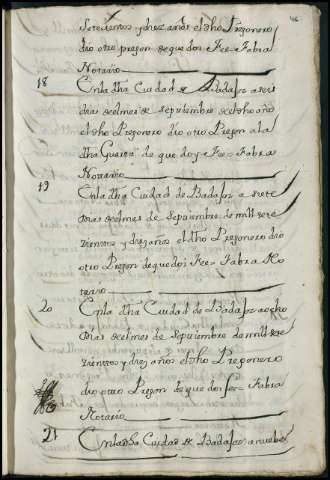 46
Setecientos y diez años el dho Pregonero
dio otro pregon de que doy Fee= Fabra
Notario
18 En la dha Ciudad de Badajoz a seis
dias del mes de septiembre de el dho año
el dho Pregonero dio otro Pregon a la
dha de que doy Fee= Fabra
Notario
19 En la dha Ciudad de Badajoz a siete
dias del mes de septiembre de mill sete
zientos y diez años el dho Pregonero dio
otro Pregon de que doi Fee= Fabra No
tario
20 En la dha Ciudad de Badajoz a ocho
dias del mes de septiembre de mill sete
zientos y diez años el dho Pregonero
dio otro Pregon de que doi fee= Fabra
Notario
21 En la dha Ciudad de Badajoz a nuebe